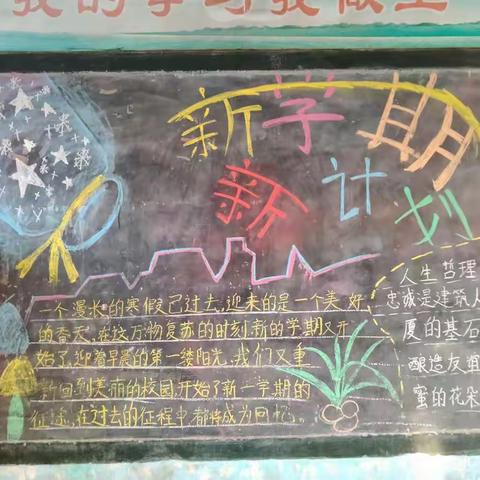 我的学习我做主
新学期
新计划
一个漫长的寒假已过去,迎来的是一个美好
的春天,在这万物复苏的时刻,新的学期又开
始了,迎着早晨的第一缕阳光,我们又重
新回到美丽的校园,开始了新一学期的
征途,在过去的征程中都将成为回忆。
人生哲理
忠诚是建筑人
厦的基石
酿造友谊
蜜的花朵